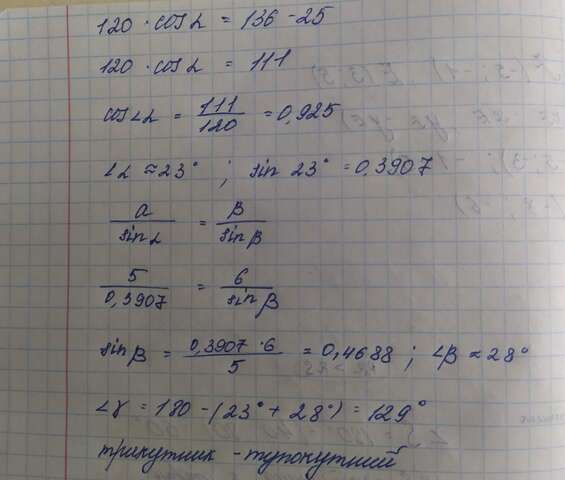 120 · cos α = 136 - 25
120 · cos α = 111
cos∠α = 111/120 = 0,925
∠α ≈ 23° ; sin 23° = 0,3907
a/sin α = β/sin β
5/0,3907 = 6/sin β
sin β = 0,3907 · 6/5 = 0,4688 ; ∠β ≈ 28°
∠γ = 180 - (23° + 28°) = 129°
трикутник - тупокутний